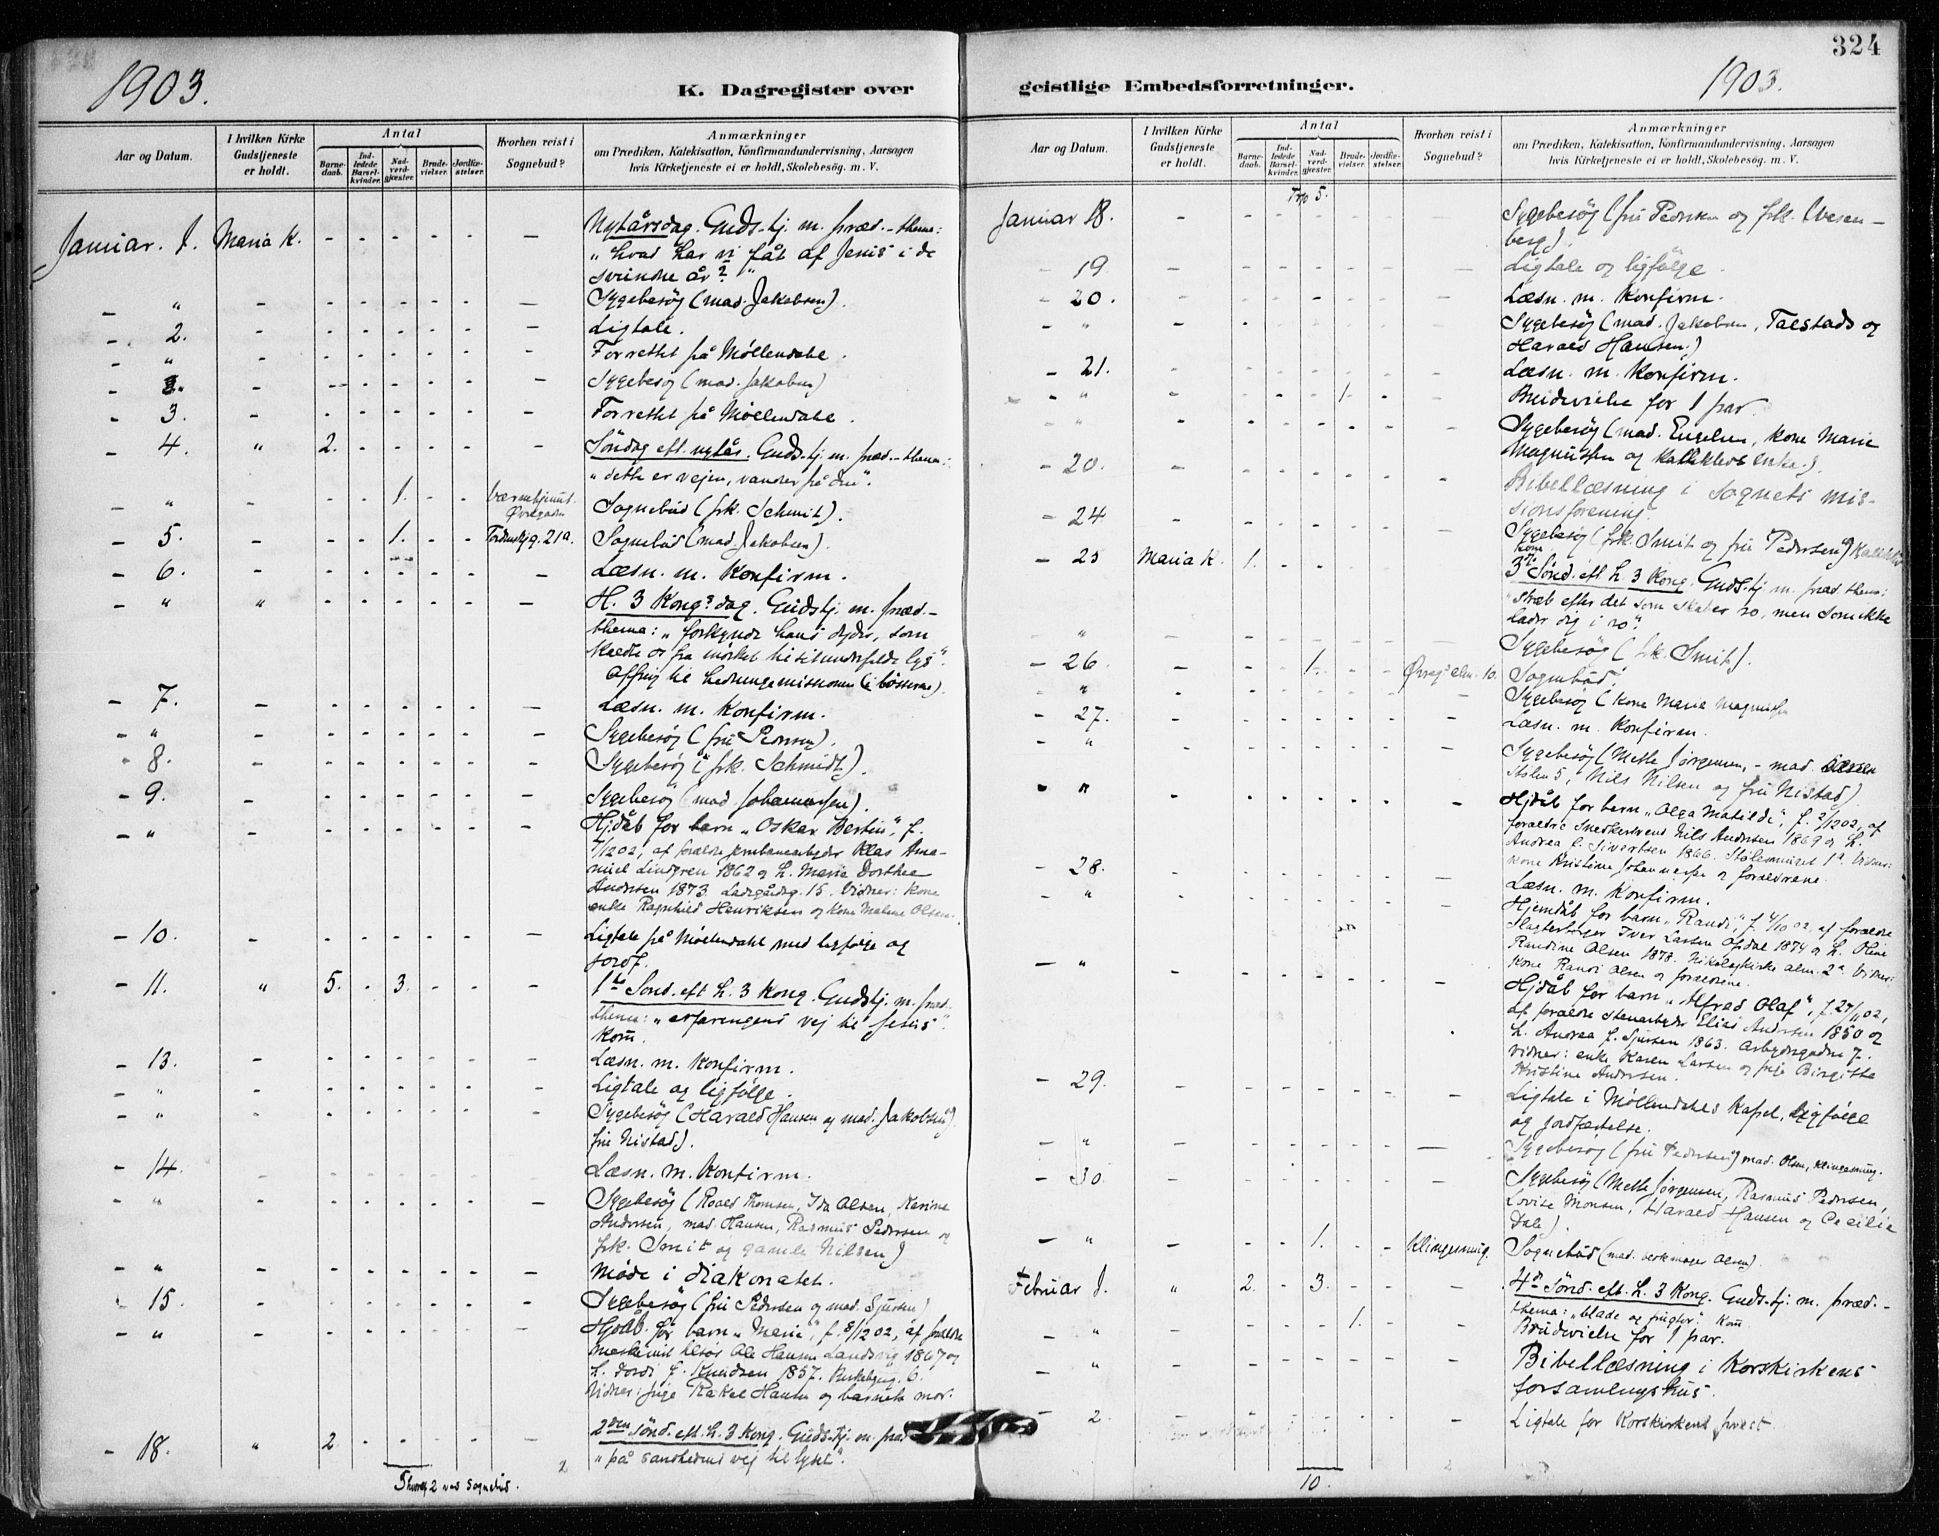 324
1903.
1903.
K. Dagregister over
geistlige Embedsforretninger.
Aar og Datum.
I hvilken Kirke Gudstjeneste er holdt.
Antal
Barnedaab.
Indledede Barselkvinder.
Nadverdgjæster.
Brudevielser.
Jordfæstelser.
Hvorhen reist i Sognebud?
Anmærkninger
om Prædiken, Katekisation, Konfirmandundervisning, Aarsagen
hvis Kirketjeneste ei er holdt, Skolebesøg. m. V.
Januar. 1. Maria K. Nytårsdag. Guds.tj. m. præd. - thema:
„hvad har vi fåt af Jesus i de
svundne år?"
" Sygebesøg (mad. Jakobsen).
2. Ligtale.
" Forrettet på Møllendahl.
Sygebesøg (mad. Jakobsen)
3. Forrettet på Møllendahl.
4. " 2. Søndag eft. nytår. Guds.tj. m. præd. - thema:
„dette er vejen, vandrer på den".
" 1. Øvregaden Sognebud (frk. Schmit).
5. 1. 21a. Sognebud (mad. Jakobsen).
6. Læsn. m. Konfirm.
" " H. 3 Kong.s dag. Gudstj. m. præd. -
thema: „forkynde hans dyder, som
kaldte os fra mørket til sit underfulde lys".
Offring til hedningemissionen (i bøsserne).
7. Læsn. m. Konfirm.
" Sygebesøg (fru Pedersen).
8. Sygebesøg (frk. Schmidt).
9. Sygebesøg (mad. Johannessen).
" Hjdåb for barn „Oskar Bertin", f.
/12 02, af forældre Jernbanearbejder Klas Ama-
nuel Lindgren 1862 og h. Maria Dorthea
Andersen 1873. Ladegårdsg. 15. Vidner: kone
enke Ragnhild Henriksen og kone Malene Olsen.
10. Ligtale på Møllendahl med ligfølge og
jordf.
11. " 5. 3. 1te Sønd. eft. h. 3 Kong. Gudstj. m. præd.
thema: „erfaringens vej til Jesus".
Kom.
13. Læsn. m. Konfirm.
" Ligtale og ligfølge.
" Sygebesøg (Harald Hansen og mad. Jakobsen)
fru Nistad).
14. Læsn. m. Konfirm.
" Sygebesøg (Roald Thomsen, Ida Olsen, Karine
Andersen, mad. Hansen, Rasmus Pedersen og
frk. Smit og gamle Nilsen)
" Møde i diakonatet.
15. Sygebesøg (fru Pedersen og mad. Sjursen)
" Hjdåb for barn „Marie", f. 8/12 02, af forældre
Ole Hansen Landsvig 1867 og
h. Dordi f. Knudsen 1857. 6.
Vidner: frøje Rakel Hansen og barnets mor.
18. " 2. 2den Sønd. eft. h. 3 Kong. Gudstj. m. præd
„på sandhedens vej til lyset".
2
5 hvoraf 2 ved sognebud.
Aar og Datum.
I hvilken Kirke Gudstjeneste er holdt.
Antal
Barnedaab.
Indledede Barselkvinder.
Nadverdgjæster.
Brudevielser.
Jordfæstelser.
Hvorhen reist i Sognebud?
Anmærkninger
om Prædiken, Katekisation, Konfirmandundervisning, Aarsagen
hvis Kirketjeneste ei er holdt, Skolebesøg. m. V.
Trsp 5.
Januar 18. Sygebesøg (fru Pedersen og frk. Wesen-
berg).
19. Ligtale og ligfølge.
20. Læsn. m. Konfirm.
" Sygebesøg (mad. Jakobsen, Talstads og
Harald Hansen.)
21. Læsn. m. Konfirm.
" 1. Brudevielse for 1 par.
" Sygebesøg (mad. Engelsen, kone Marie
Magnussen og enke.).
20. Bibellæsning i sognets mis-
sionsforening.
24 Sygebesøg (frk. Smit og fru Pedersen)
25 Maria K. 1. 3die Sønd. eft. h. 3 Kong. Guds.tj. m. præd. thema:
„stræb efter det som skaber ro, men som ikke
lader dig i ro".
" Sygebesøg (frk. Smit).
26 1. Øvreg. alm. 10. Sognebud.
" Sygebesøg (kone Maria Magnussen
27. Læsn. m. Konfirm.
" Sygebesøg (Mette Jørgensen, - mad. Olsen
Stølen 5, Nils Nilsen og fru Nistad)
" Hjdåb for barn „Olga Matilde", f. 2/12 02, af
forældre Snedkersvend Nils Andersen 1869 og h.
Andrea f. Sivertsen 1866. Stølesmuget 1a. Vidner:
kone Kristine Johannessen og forældrene.
28. Læsn. m. Konfirm.
" Hjemdåb for barn „Randi", f. 4/10 02, af forældre
Slagterborger Iver Larsen Opdal 1874 og h. Oline
Randine Olsen 1878. Nikolajkirke alm. 2a. Vidner:
kone Randi Olsen og forældrene.
" Hjdåb for barn „Alfred Olaf", f. 27/11 02,
af forældre Stenarbejder Elias Andersen 1850 og
h. Andrea f. Sjursen 1863. Arbejdergaden 7.
Vidner: enke Karen Larsen og frøje Birgitte
Kristine Andersen.
29. Ligtale i Møllendahls Kapel, Ligfølge
og jordfæstelse.
" Sygebesøg (fru Pedersen) mad. Olsen, Klingesmug.
30. Sygebesøg (Mette Jørgensen, Rasmus Pedersen,
Lovise Monsen, Harald Hansen og Cecilie
Dale).
" 1. Klingesmug. Sognebud (mad. Olsen).
Februar 1. " 2. 3. 4de Sønd. eft. h. 3 Kong. Guds.tj. m. præd. -
thema: „blade og frugter". Kom
" 1. Brudevielse for 1 par.
" Bibellæsning i Korskirkens
forsamlingshus.
2. Ligtale for Korskirkens prest.
10.